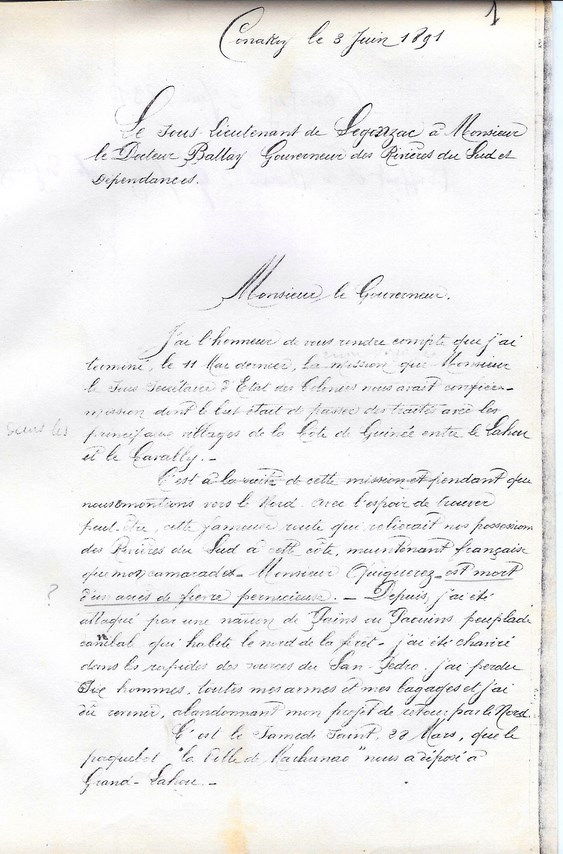 1
Conakry le 3 Juin 1891
Le Sous-Lieutenant de Segonzac à Monsieur
le Docteur Ballay Gouverneur des Rivières du Sud et
Dépendances.
Monsieur le Gouverneur.
J'ai l'honneur de vous rendre compte que j'ai
terminé, le 11 Mai dernier, la mission que Monsieur
le Sous Secrétaire d'Etat des Colonies nous avait confiée -
mission dont le but était de passer des traités avec les
principaux villages de la Côte de Guinée entre le Lahou
et le Cavally. -
C'est à la suite de cette mission et pendant que
nous remontions vers le Nord avec l'espoir de trouver
peut-être, cette fameuse route qui relierait nos possession
des Rivières du Sud à cette côte, maintenant française
que mon camarade - Monsieur Quiquerez - est mort
?
d'un accès de fièvre pernicieuse. - Depuis, j'ai été
attaqué par une nation de Pains ou peuplade
qui habite le nord de la forêt - j'ai été chaviré
dans les rapides des sources du San-Pedro. j'ai perdu
Six hommes, toutes mes armes et mes bagages et j'ai
dû revenir, abandonnant mon projet de retour par le Nord.
C'est le Samedi Saint, 28 Mars, que le
paquebot "la Ville de Maranhao" nous a déposé à
Grand-Lahou. -